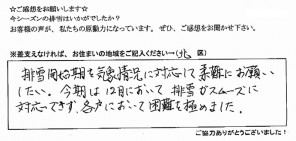 ☆ご感想をお願いします☆
今シーズンの排雪はいかがでしたか？
お客様の声が、私たちの原動力になっています。ぜひ、ご感想をお聞かせ下さい。
※差支えなければ、お住まいの地域をご記入ください→（北 区）
排雪開始期を気象情況に対応して柔軟にお願い
したい。今期は12月において排雪がスムーズに
対応できず、各戸において困難を極めました。
ご協力ありがとうございました！